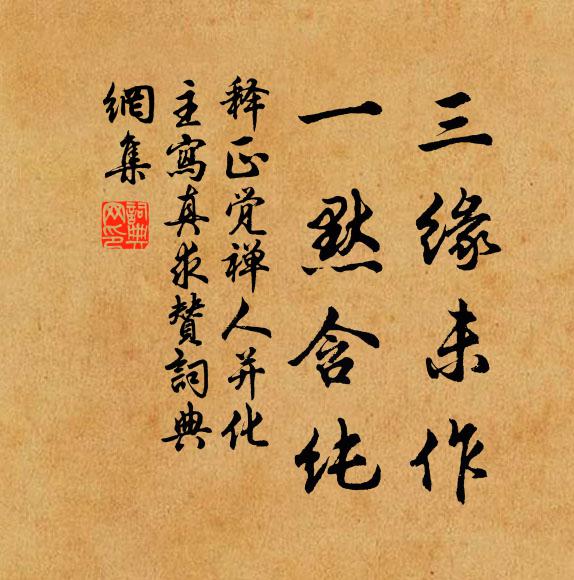 三缘未作
一默含纯
释正觉禅人并化
主写真求赞词典
网集
词典
网印